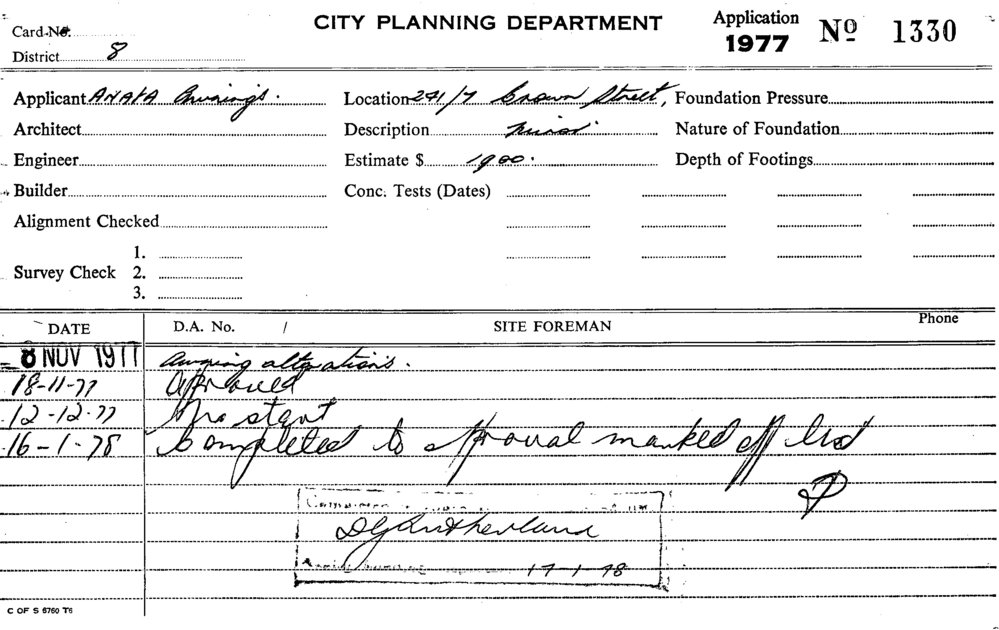 CITY PLANNING DEPARTMENT
Application
1977 Nº 1330
Card No.
District 8
Applicant ANATA Awnings.
Location 241/7 Crown Street,
Foundation Pressure
Architect
Description minor
Nature of Foundation
Engineer
Estimate $ 1900.
Depth of Footings
Builder
Conc. Tests (Dates)
Alignment Checked
1.
Survey Check 2.
3.
DATE D.A. No. / SITE FOREMAN Phone
8 NOV 1977 Awning alterations.
18-11-77 Approved
12-12-77 No start
16-1-78 Completed to approval marked off list
DGRutherland
17-1-78
C OF S 6760 T6